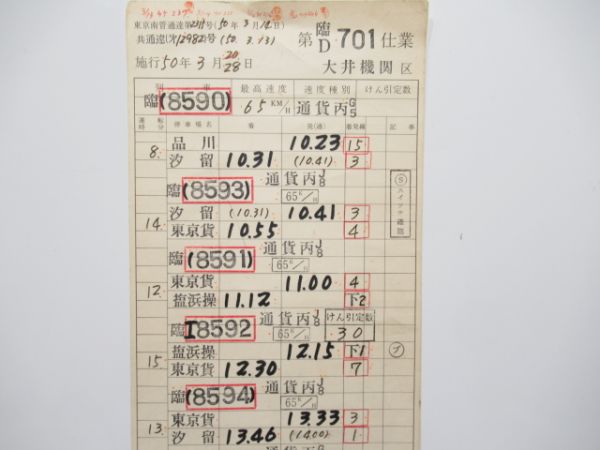 東京南管通達第 号(50年3月12日)
共通達(オ12982)号(50.3.13)
第臨D-701仕業
施行50年3月20/28日
大井機関区
列車 最高速度 速度種別 けん引定数
臨(8590) 65KM/H 通貨丙G5
運転時分 停車場名 着 発(通) 着発線 記事
品川 10.23 15
8.
汐留 10.31 (10.41) 3
臨(8593) 通貨丙J8 65K/H
Ⓢスイッチ確認
汐留 (10.31) 10.41 3
14.
東京貨 10.55 4
臨(8591) 通貨丙J8 65K/H
東京貨 11.00 4
12.
塩浜操 11.12 下2
臨I8592 通貨丙J8 65K/H けん引定数 30
塩浜操 12.15 下1
15.
東京貨 12.30 7
臨(8594) 通貨丙J8 65K/H
東京貨 13.33 3
13.
汐留 13.46 (14.00) 1